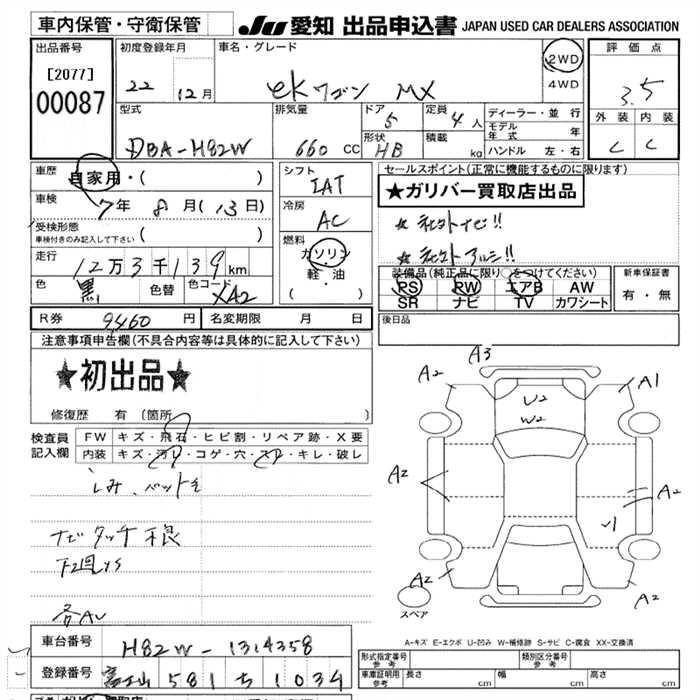 車内保管・守衛保管
JU 愛知 出品申込書 JAPAN USED CAR DEALERS ASSOCIATION
出品番号
[2077]
00087
初度登録年月
22 12月
車名・グレード
eKワゴン MX
2WD
4WD
評価点
3.5
外装 内装
C C
型式
DBA-H82W
排気量
660 CC
ドア
5
形状
HB
定員
4人
積載
kg
ディーラー・並行
モデル年式 年
ハンドル 左・右
車歴
自家用・( )
車検
7年 8月(13日)
受検形態
車検付きのみ記入して下さい ( )
走行
12万3千139km
色
黒
色替
色コード
XA2
シフト
IAT
冷房
AC
燃料
ガソリン
軽・油
( )
セールスポイント(正常に機能するものに限ります)
★ガリバー買取店出品
★ 社外ナビ!!
★ 社外アルミ!!
装備品(純正品に限り○をつけてください)
PS PW エアB AW
SR ナビ TV カワシート
新車保証書
有・無
R券 9460円
名変期限 月 日
後日品
注意事項申告欄(不具合内容等は具体的に記入して下さい)
★初出品★
修復歴 有(箇所 )
検査員記入欄
FW キズ・飛石・ヒビ割・リペア跡・X要
内装 キズ・汚れ・コゲ・穴・スレ・キレ・破レ
シミ、ペット毛
ナビタッチ不良
下廻りS
各AU
A2 A3 A1
U2
W2
A2
A2
A2
A2
スペア
A-キズ E-エクボ U-凹み W-補修跡 S-サビ C-腐食 XX-交換済
車台番号 H82W-1314358
登録番号 富士山 581 ち 1034
形式指定番号
参考
類別区分番号
参考
車庫証明用
参考
長さ cm 幅 cm 高さ cm